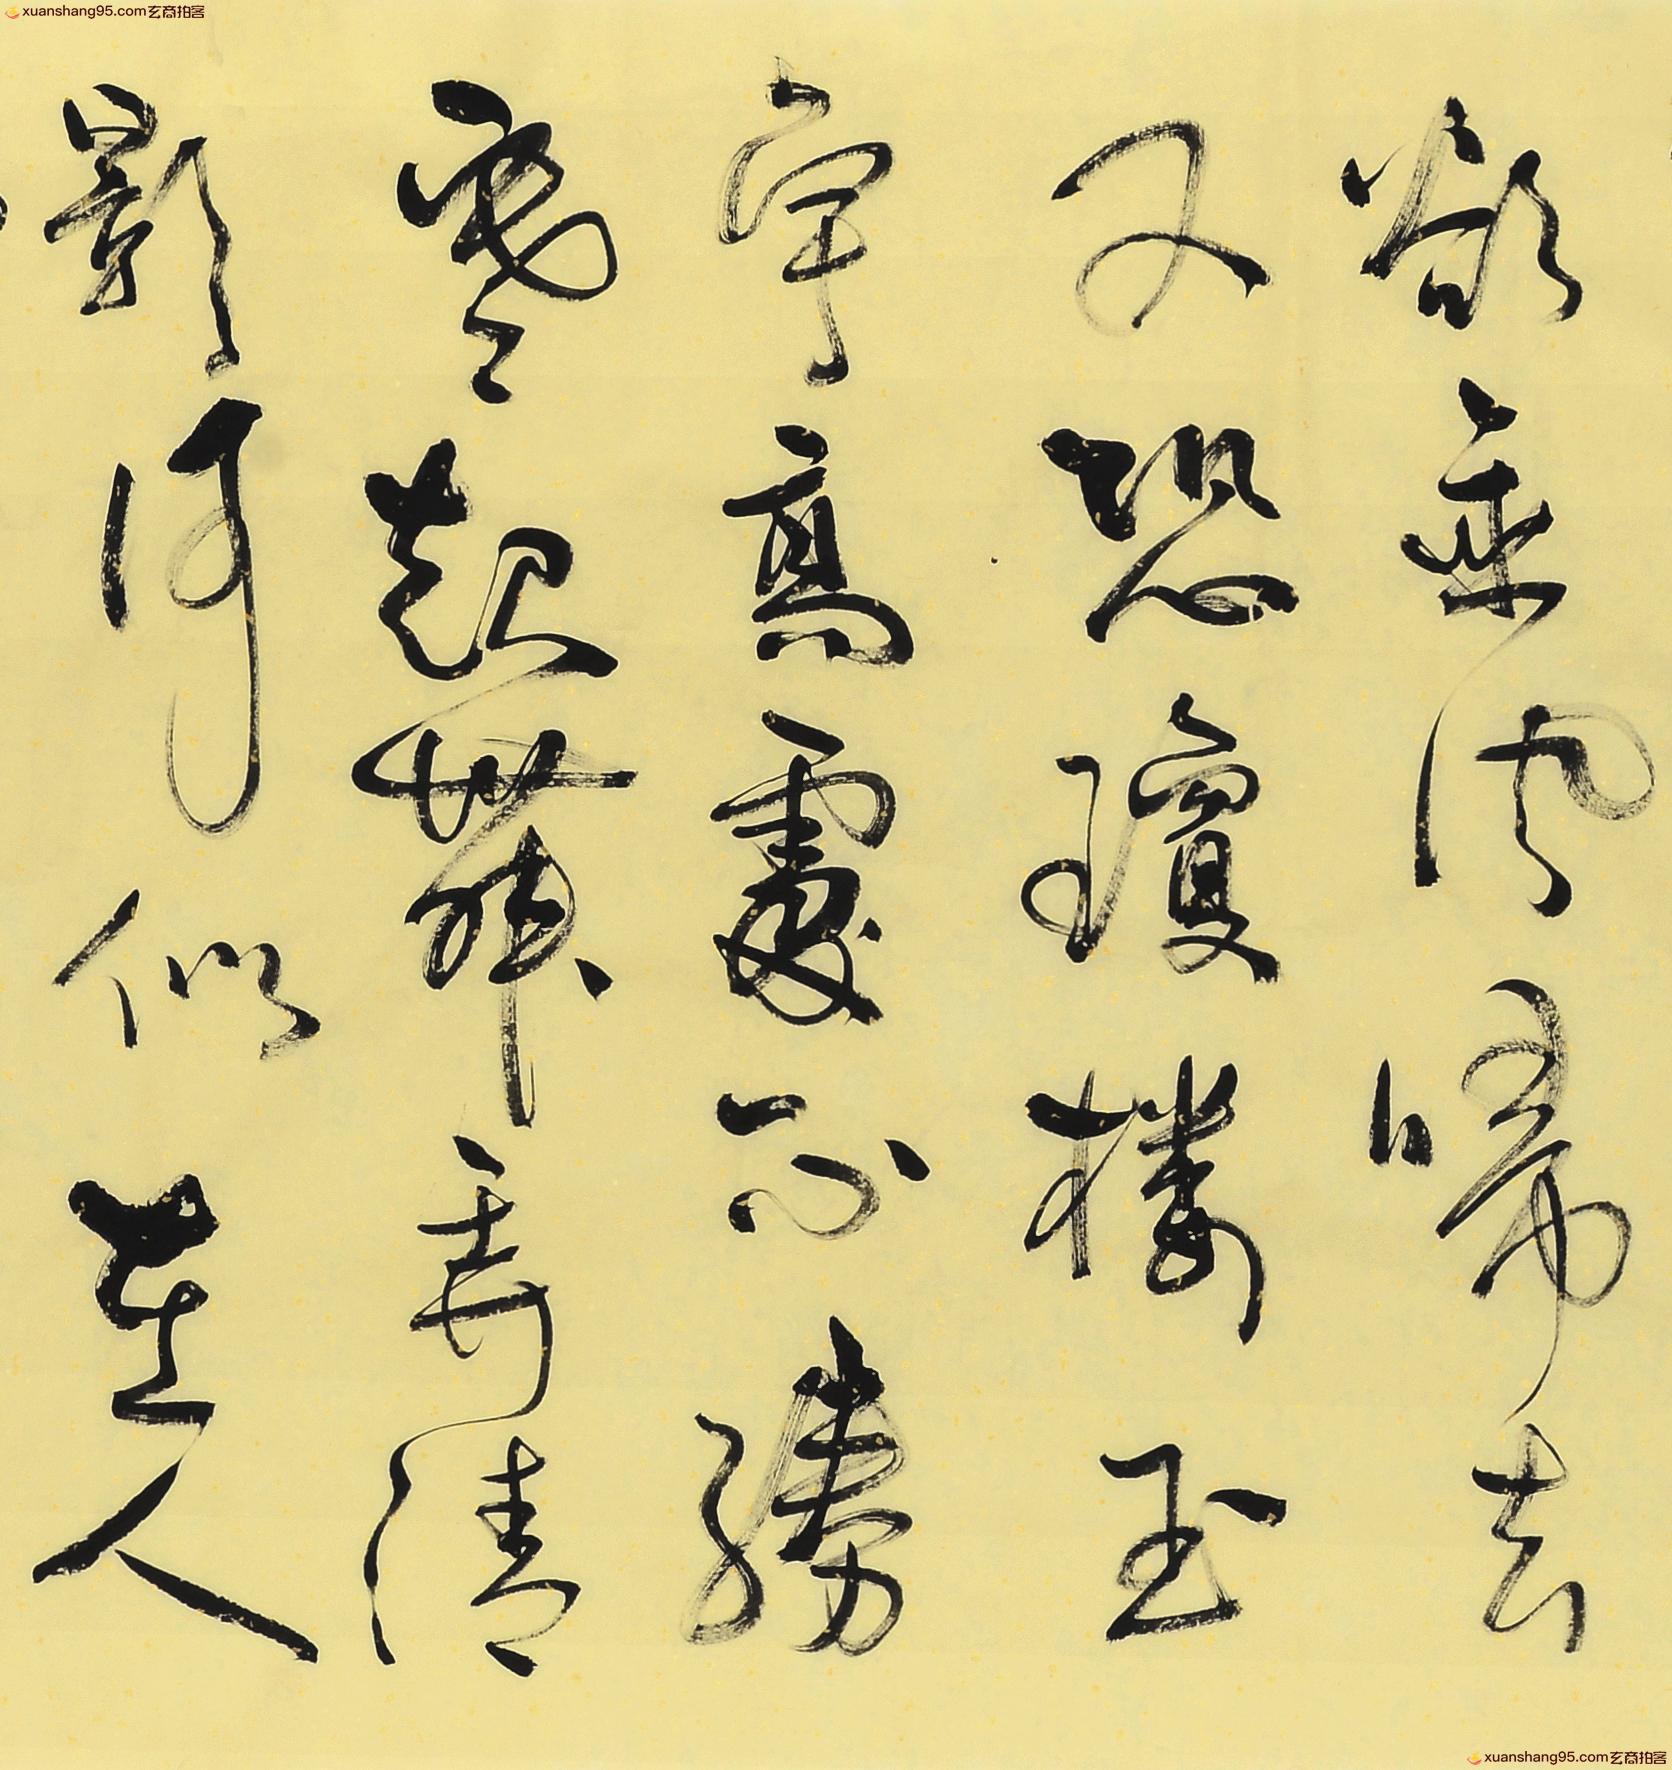 xuanshang95.com玄商拍客
欲乘风归去
又恐琼楼玉
宇高處不勝
寒起舞弄清
影何似在人
xuanshang95.com玄商拍客